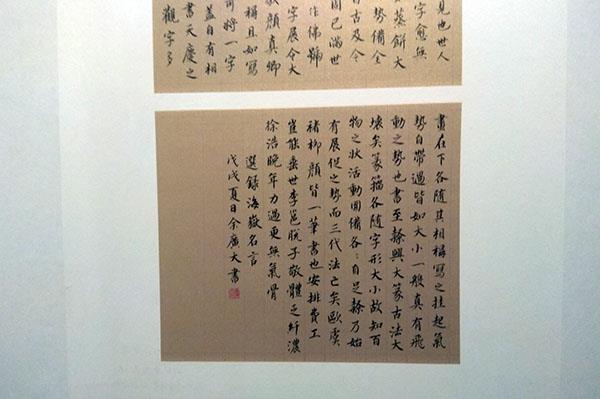 見也世人
字愈無
蒸餅大
勢備全
古及今
固已滿世
字展令大
作佛號
顏真卿
稱且如寫
可將一字
蓋自有相
書天慶之
觀字多
畫在下各隨其相稱寫之挂起氣
勢自帶過皆如大小一般真有飛
動之勢也書至隸興大篆古法大
壞矣篆籀各隨字形大小故知百
物之狀活動圓備各:自足隸乃始
有展促之勢而三代法亡矣歐虞
褚柳顏皆一筆書也安排費工
豈能垂世李邕脫子敬體乏纖濃
徐浩晚年力過更無氣骨
選錄海嶽名言
戊戌夏日余廣大書